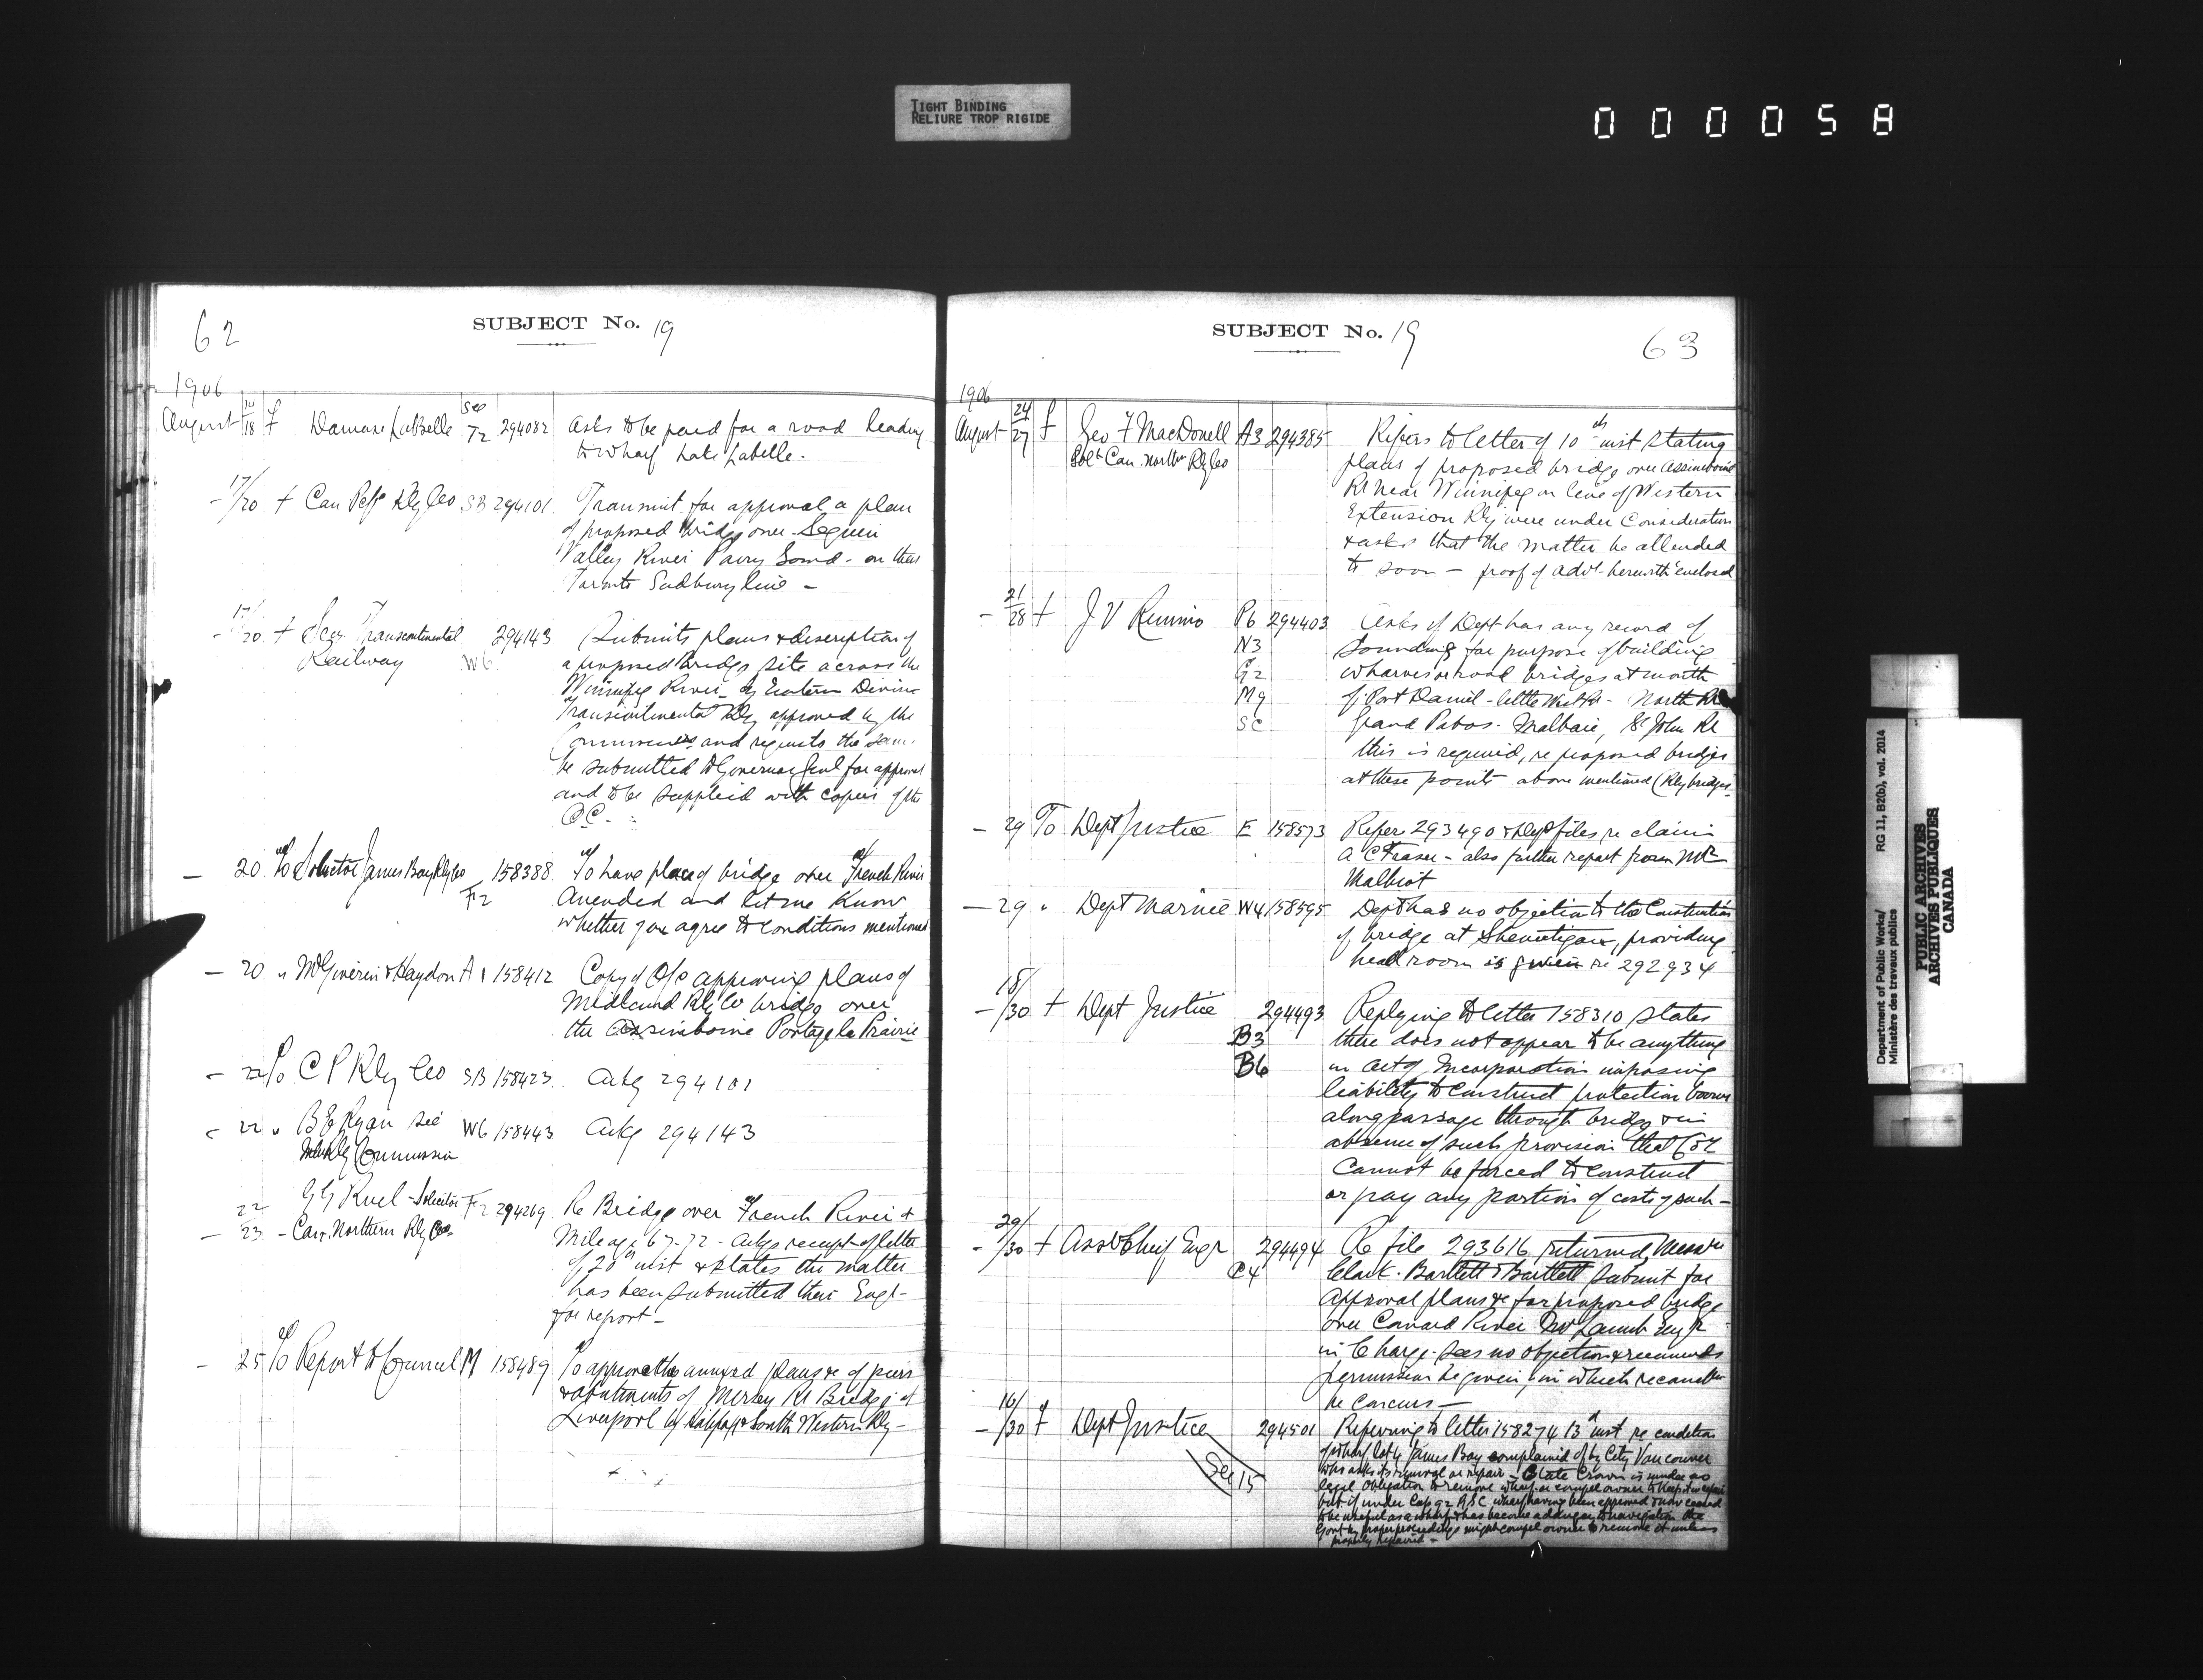 TIGHT BINDING
RELIURE TROP RIGIDE
000058
62
SUBJECT No. 19
1906
August 14/18 f Damase LaBelle Sec T2 294082 Asks to be paid for a road leading
to wharf Lake Labelle.
- 17/20 f Can Pcfc Rly Co SB 294101 Transmit for approval a plan
of proposed bridge over Seguin
Valley River Parry Sound - on their
Toronto Sudbury line -
- 17/20 f Secy Transcontinental 294143 Submits plans & description of
Railway W6 a proposed bridge site across the
Winnipeg River - of Eastern Divin
Transcontinental Rly approved by the
Commissrs and requests the same
be submitted to Governor Genl for approval
and to be supplied with copies of the
OC.
- 20 To Solicitor James Bay Rly Co 158388 To have plan of bridge over French River
F2 Amended and let me know
whether you agree to conditions mentioned
- 20 " McGiverin & Haydon A1 158412 Copy of O/C approving plans of
Midland Rly Co bridge over
the Assiniboine Portage la Prairie
- 22 To C P Rly Co SB 158423 Ackg 294101
- 22 " B E Ryan Sec W6 158443 Ackg 294143
Rly Commission
22 G G Ruel - Solicitor F2 294269 Re Bridge over French River &
- 23 - Can. Northern Rly Co Mileage 67-72 - Ackgs receipt of letter
of 20th inst & states the matter
has been submitted their Engr
for report -
- 25 To Report to Council M 158489 To approve the annexed plans &c of piers
& abutments of Mersey Rr Bridge at
Liverpool by Halifax & South Western Rly -
SUBJECT No. 19
63
1906
August 24/27 f Geo F MacDonell A3 294385 Refers to letter of 10th inst stating
Solr Can. Northn Rly Co plans of proposed bridge over Assiniboine
Rr near Winnipeg on line of Western
Extension Rly were under Consideration
& asks that the matter be attended
to soon - proof of advt herewith enclosed
- 21/28 f J V P6 294403 Asks if Dept has any record of
N3 Soundings for purpose of building
G2 wharves or road bridges at mouth
M9 of Port Daniel - little West Rr - North Rr
SC Grand Pabos. Malbaie, St John Rr
this is required, re proposed bridges
at these points above mentioned (Rly bridges)
- 29 To Dept Justice E 158573 Refer 293490 & Dept files re claim
A C Fraser - also further report from Mr
Malhiot
- 29 " Dept Marine W4 158595 Dept has no objection to the Construction
of bridge at , providing
head room is given re 292934
- 18/30 f Dept Justice 294493 Replying to letter 158310 states
B3 there does not appear to be anything
B6 in Act of Incorporation imposing
liability to construct protection booms
along passage through bridge & in
absence of such provision that Coy
Cannot be forced to construct
or pay any portion of cost of such -
- 29/30 f Asst Chief Engr 294494 Re file 293616 returned, Messrs
C4 Clark. Bartlett & Bartlett submit for
Approval plans &c for proposed bridge
over Canard River Mr Lamb Engr
in Charge. sees no objection & recommends
permission be given, in which recommdn
he concurs -
- 16/30 f Dept Justice 294501 Referring to letter 158274 13th inst re condition
See 15 of wharf Lot 4 James Bay complained of by City Vancouver
who asks its removal or repair - State Crown is under no
legal obligation to remove wharf or compel owner to keep it in repair
but if under Cap 92 RSC wharf having been approved & now ceased
to be useful as a wharf & has become a danger to navigation the
Govt by proper proceedings might compel owner to remove it unless
properly repaired -
Department of Public Works/ RG 11, B2(b), vol. 2014
Ministère des travaux publics
PUBLIC ARCHIVES
ARCHIVES PUBLIQUES
CANADA